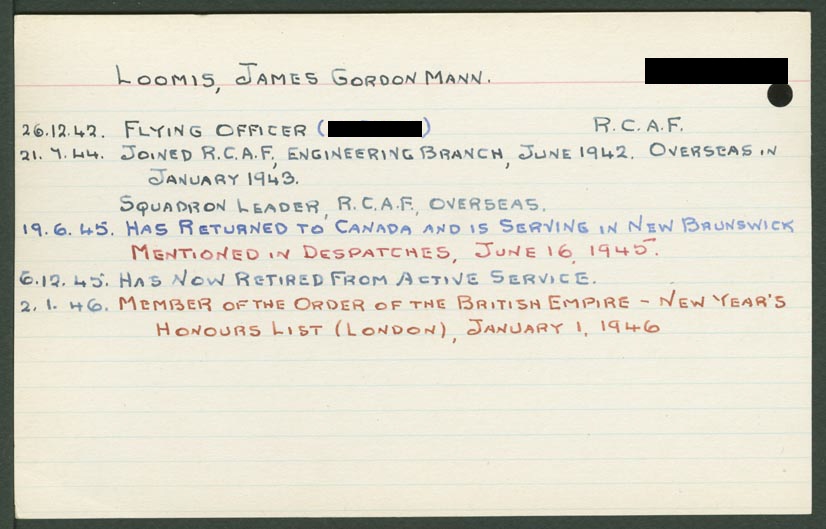 LOOMIS, JAMES GORDON MANN.
26.12.42. FLYING OFFICER ( ) R.C.A.F.
21. 7. 44. JOINED R.C.A.F., ENGINEERING BRANCH, JUNE 1942. OVERSEAS IN
JANUARY 1943.
SQUADRON LEADER, R.C.A.F., OVERSEAS.
19. 6. 45. HAS RETURNED TO CANADA AND IS SERVING IN NEW BRUNSWICK
MENTIONED IN DESPATCHES, JUNE 16, 1945.
6.12. 45. HAS NOW RETIRED FROM ACTIVE SERVICE.
2. 1. 46. MEMBER OF THE ORDER OF THE BRITISH EMPIRE – NEW YEAR'S
HONOURS LIST (LONDON), JANUARY 1, 1946